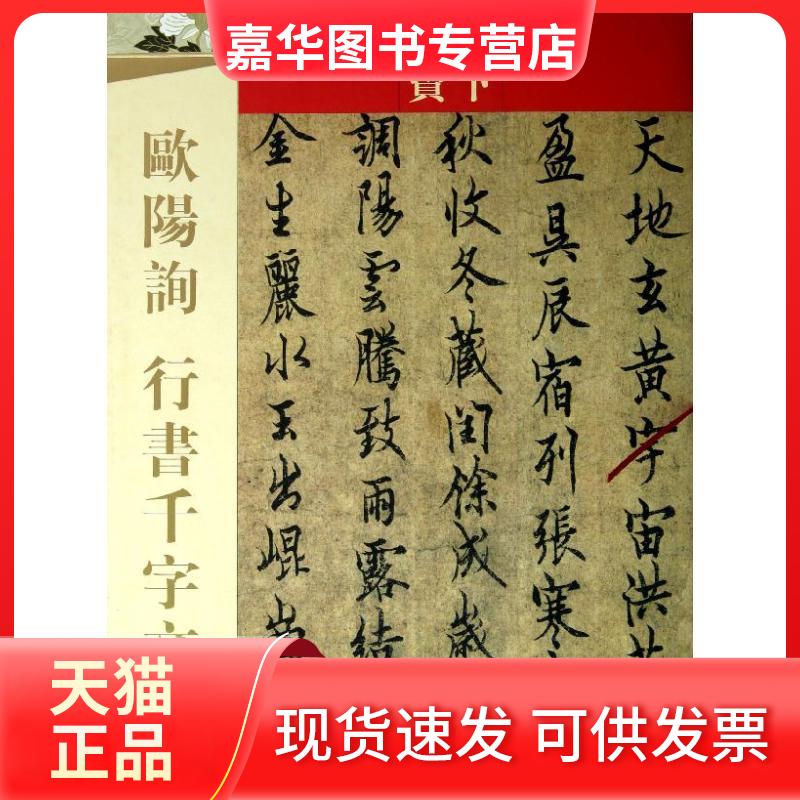 嘉华图书专营店
歐陽詢 行書千字文
天地玄黄宇宙洪
盈昃辰宿列張寒
秋收冬藏闰餘成歲
調陽雲騰致雨露結
金生麗水玉出崐
天猫
正品
现货速发 可供发票